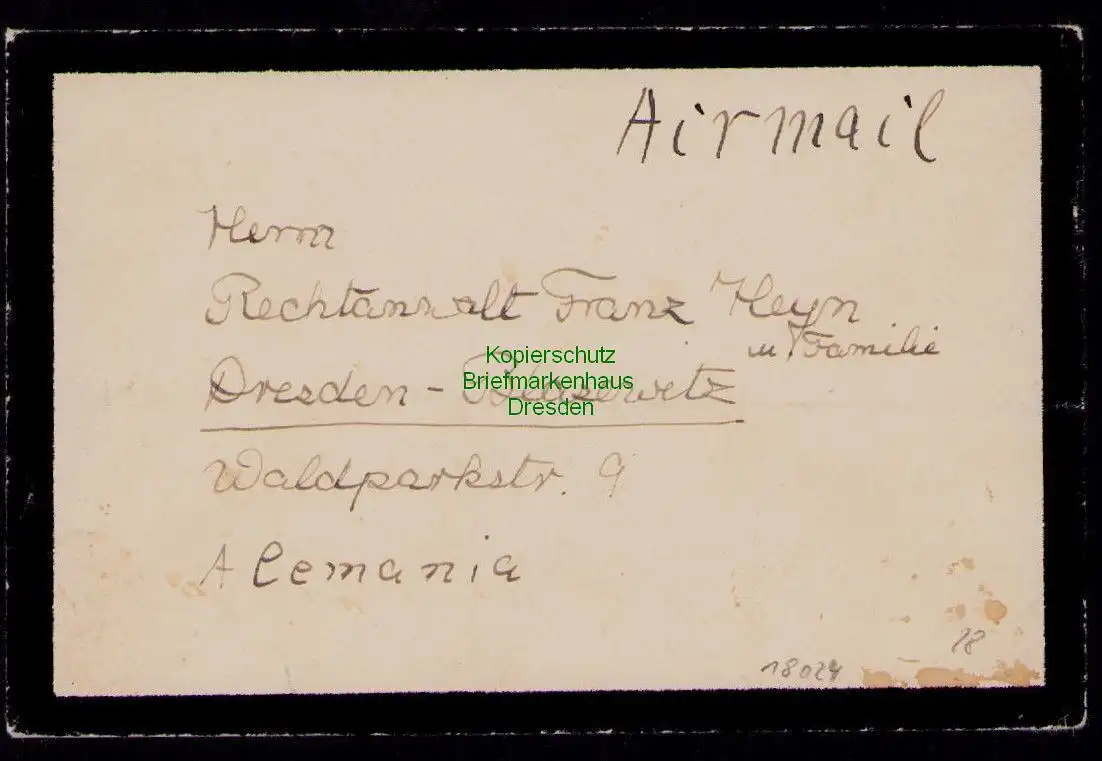 Airmail
Herrn
Rechtanwalt Franz Heyn
u. Familie
Kopierschutz
Briefmarkenhaus
Dresden
Dresden - Blasewitz
Waldparkstr. 9
Alemania
18024